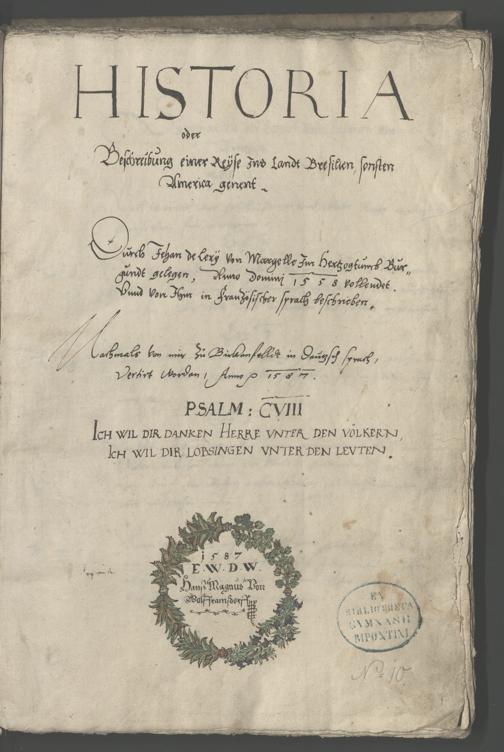 HISTORIA
oder
Beschreibung einer Reÿse Ins Landt Bresilien, sonsten
America genent.
Durch Jehan de Lerÿ von Margelle Im Hertzogtumb Bur-
gundt gelegen, Anno Domini 1558 vollendet.
Vnnd von Ihm in frantzösischer sprach beschrieben.
Nachmals von mir zu Birkenfelldt in Deutzsch sprach,
Vertirt worden, Anno 1587.
PSALM : CVIII
ICH WIL DIR DANKEN HERRE VNTER DEN VÖLKERN,
ICH WIL DIR LOBSINGEN VNTER DEN LEVTEN.
1587
E.W.D.W.
Hans Magnus Von
EX
BIBLIOTHECA
GYMNASII
BIPONTINI
No 10